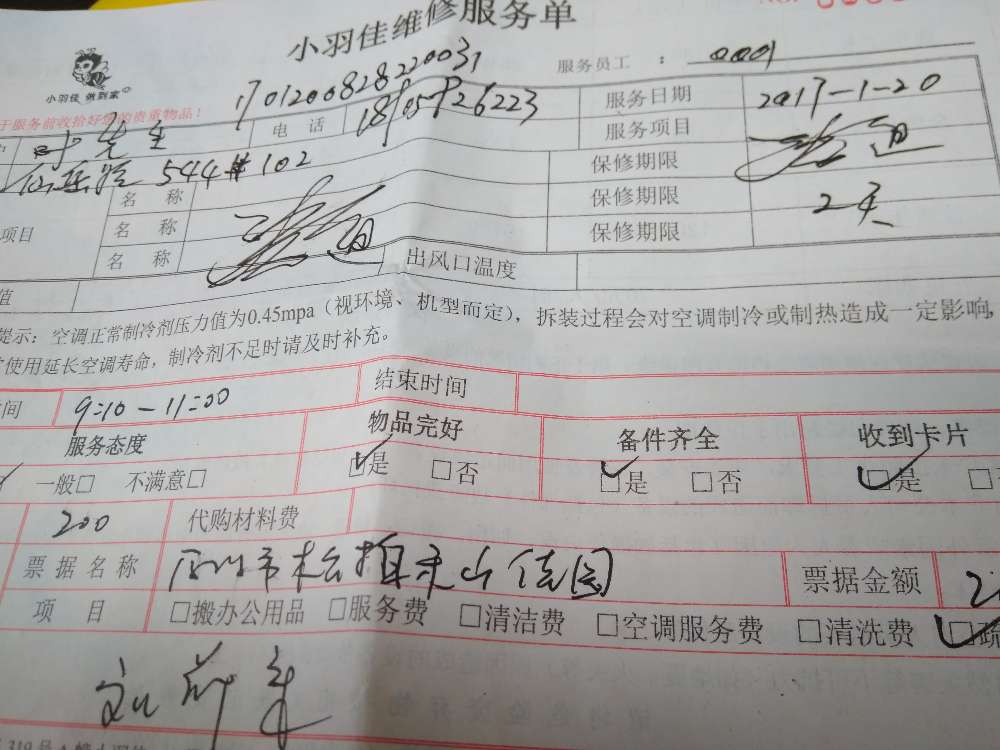 小羽佳维修服务单
小羽佳 做到家
服务员工 : 0001
1701200828220031
于服务前收拾好您的贵重物品!
叶先生 电 话 服务日期 2017-1-20
544#102 服务项目 疏通
名 称 保修期限
项目 名 称 疏通 保修期限 2天
名 称 出风口温度 保修期限
值
提示:空调正常制冷剂压力值为0.45mpa(视环境、机型而定),拆装过程会对空调制冷或制热造成一定影响,
使用延长空调寿命,制冷剂不足时请及时补充。
时间 9:10-11:00 结束时间
服务态度 物品完好 备件齐全 收到卡片
一般□ 不满意□ ☑是 □否 ☑是 □否 ☑是
200 代购材料费
票据名称 票据金额
项 目 □搬办公用品 □服务费 □清洁费 □空调服务费 □清洗费 ☑疏